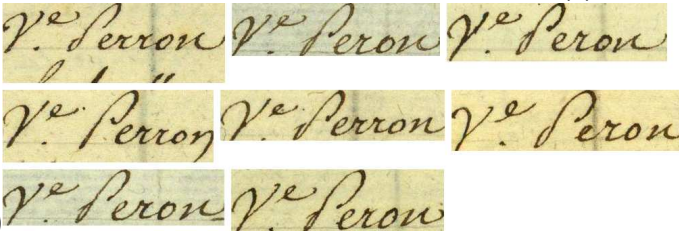 V.e Perron V.e Peron V.e Peron
V.e Perron V.e Perron V.e Peron
V.e Peron V.e Peron